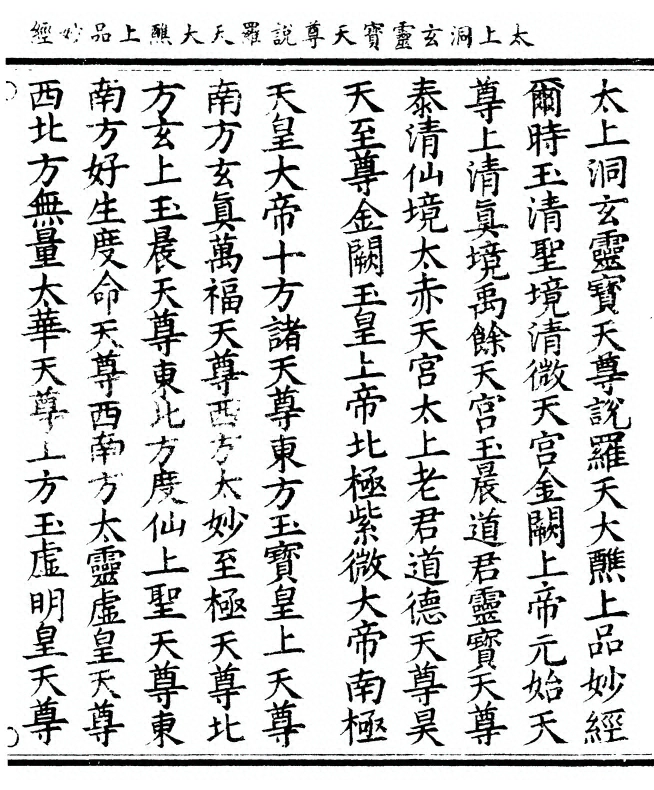 太上洞玄靈寶天尊說羅天大醮上品妙經
太上洞玄靈寶天尊說羅天大醮上品妙經
爾時玉清聖境清微天宮金闕上帝元始天
尊上清眞境禹餘天宮玉晨道君靈寶天尊
泰清仙境太赤天宮太上老君道德天尊昊
天至尊金闕玉皇上帝北極紫微大帝南極
天皇大帝十方諸天尊東方玉寶皇上天尊
南方玄眞萬福天尊西方太妙至極天尊北
方玄上玉晨天尊東北方度仙上聖天尊東
南方好生度命天尊西南方太靈虛皇天尊
西北方無量太華天尊上方玉虛明皇天尊